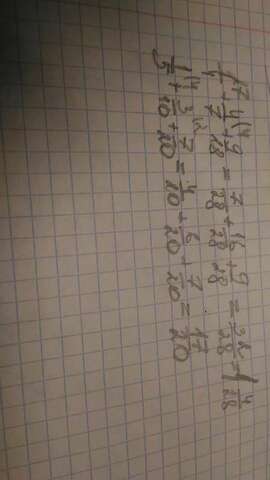 1/4 ⁷ + 4/7 ⁽⁴ + 9/28 = 7/28 + 16/28 + 9/28 = 32/28 = 1 4/28
1/5 ⁽⁴ + 3/10 ⁽² + 7/20 = 4/20 + 6/20 + 7/20 = 17/20